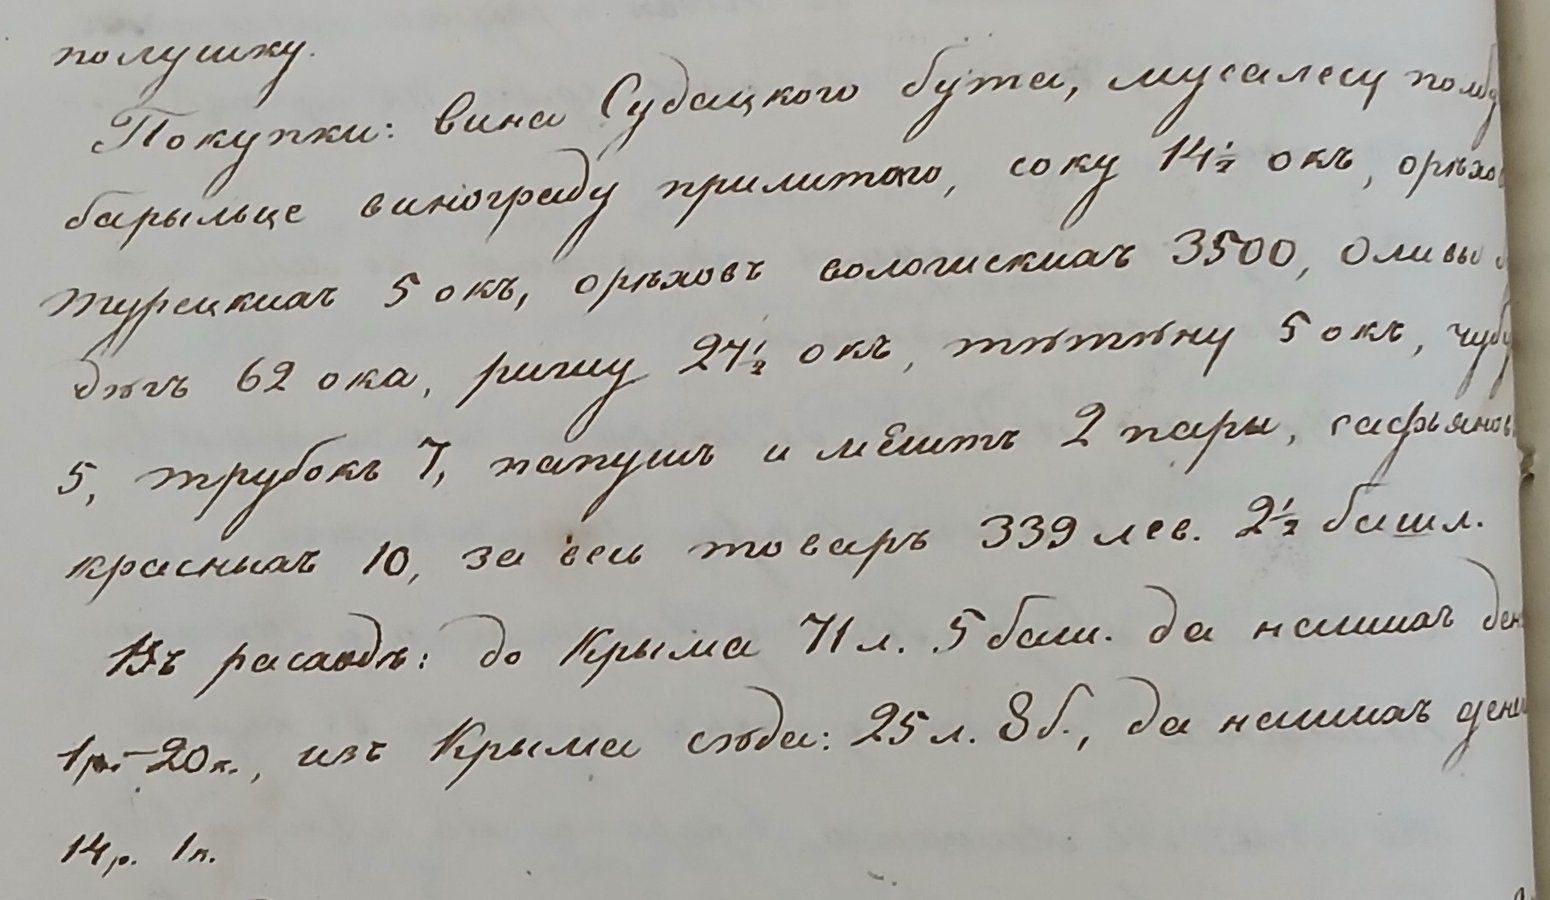 полушку.
Покупки: вина Судацкого бута, мусалесу полбу
барыльце винограду прилитого, соку 14½ окъ, орѣхов
турецкихъ 5 окъ, орѣховъ вологискихъ 3500, оливы
62 ока, рижу 27½ окъ, тютюну 5 окъ, чубу
5, трубокъ 7, папушъ и мештъ 2 пары, сафьянов
красныхъ 10, за весь товаръ 339 лев. 2½ башл.
Въ расходѣ: до Крыма 71 л. 5 баш. да нашихъ ден
1р.–20к., изъ Крыма сюда: 25 л. 8 б., да нашихъ дене
14р. 1к.